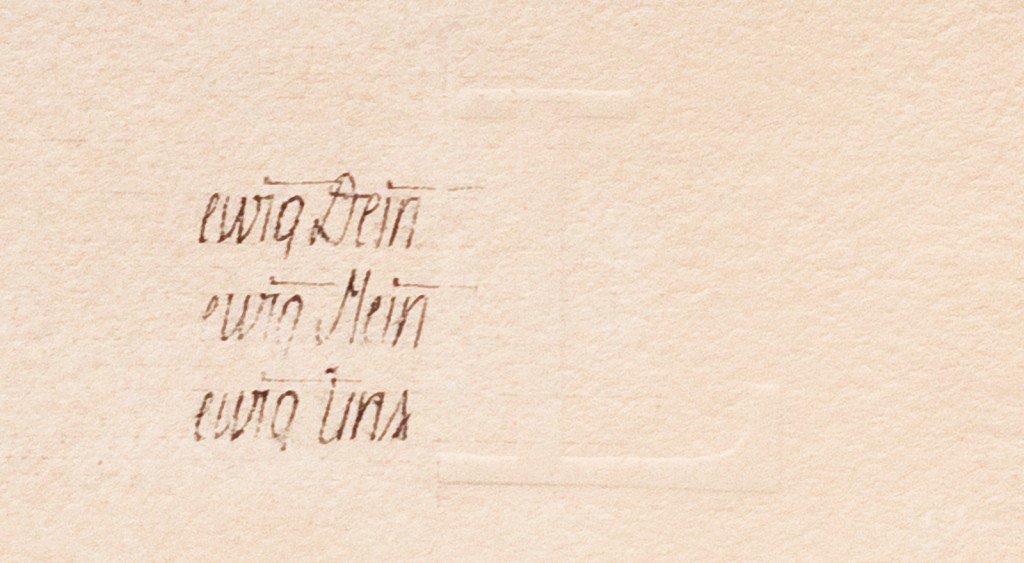 ewig Dein
ewig Mein
ewig Uns
L